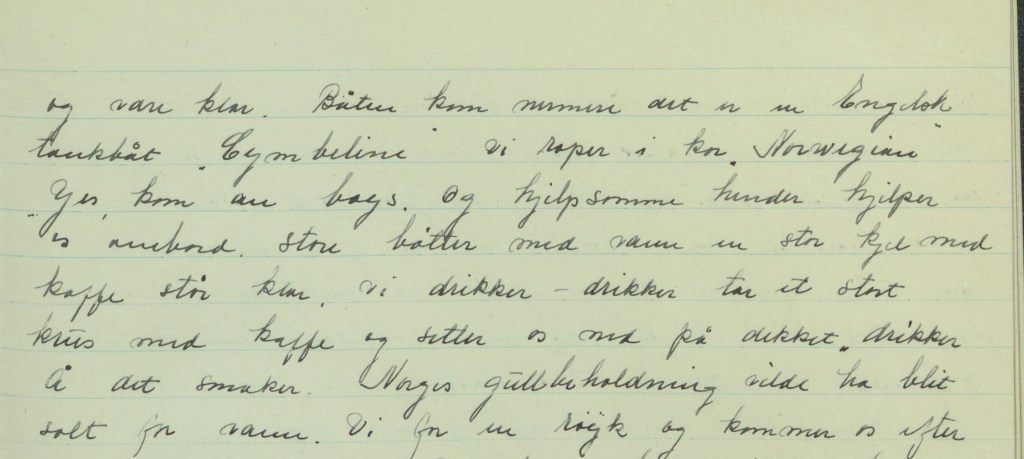 og være klar. Båten kom nermere det er en Engelsk
tankbåt "Cymbeline" vi roper i kor "Norwegian"
"Yes, kom an boys. og hjelpsomme hender hjelper
os ombord. store bøtter med vann en stor kjel med
kaffe står klar, vi drikker – drikker tar et stort
krus med kaffe og setter os ned på dekket, drikker
Å det smaker. Norges gullbeholdning vilde ha blit
solt for vann. Vi får en røyk og kommer os efter